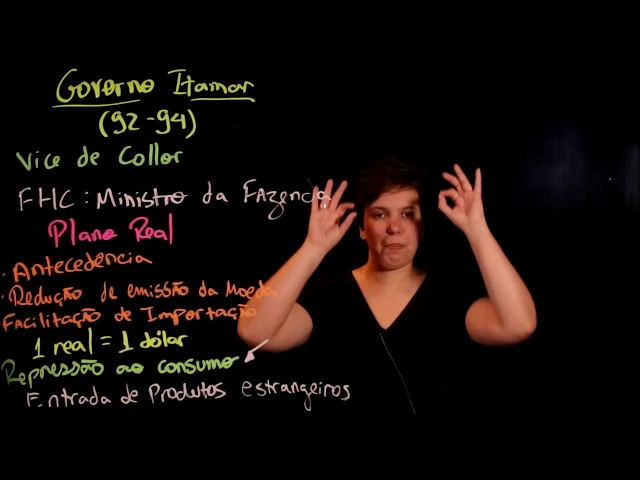 Governo Itamar
(92-94)
Vice de Collor
FHC: Ministro da Fazenda
Plano Real
· Antecedência
· Redução de emissão da Moeda
Facilitação de Importação
1 real = 1 dólar
Repressão ao consumo
Entrada de Produtos estrangeiros